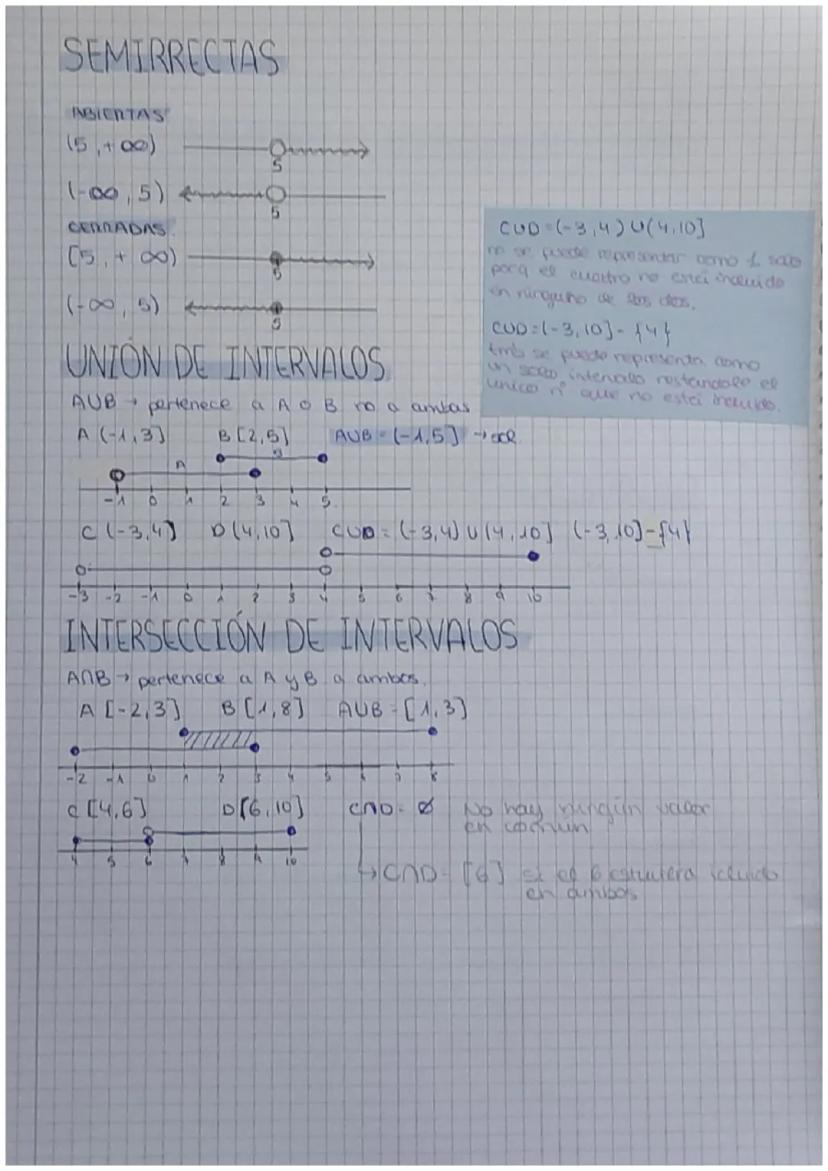 SEMIRRECTAS
ABIERTAS
(5, +∞)
5
(-∞, 5)
5
CERRADAS
[5, + ∞)
5
(-∞, 5)
5
CUD=(-3,4)U(4,10]
no se puede representar como 1 solo
porq el cuatro no está incluido
en ninguno de los dos.
CUD=(-3,10]-{4}
tmb se puede representa como
un solo intervalo restandole el
unico nº que no está incluido.
UNIÓN DE INTERVALOS
AUB → pertenece a A o B no a ambas
A (-1,3] B[2,5] AUB=(-1,5] →
A B
-1 0 1 2 3 4 5
C (-3,4) D(4,10] CUD=(-3,4)U(4,10] (-3,10]-{4}
-3 -2 -1 0 1 2 3 4 5 6 7 8 9 10
INTERSECCIÓN DE INTERVALOS
A∩B → pertenece a A y B a ambos.
A [-2,3] B[1,8] AUB=[1,3]
-2 -1 0 1 2 3 4 5 6 7 8
C[4,6] D[6,10] C∩D= Ø No hay ningún valor
en común
4 5 6 7 8 9 10
↳ C∩D= [6] si el 6 estuviera icluido
en ambos